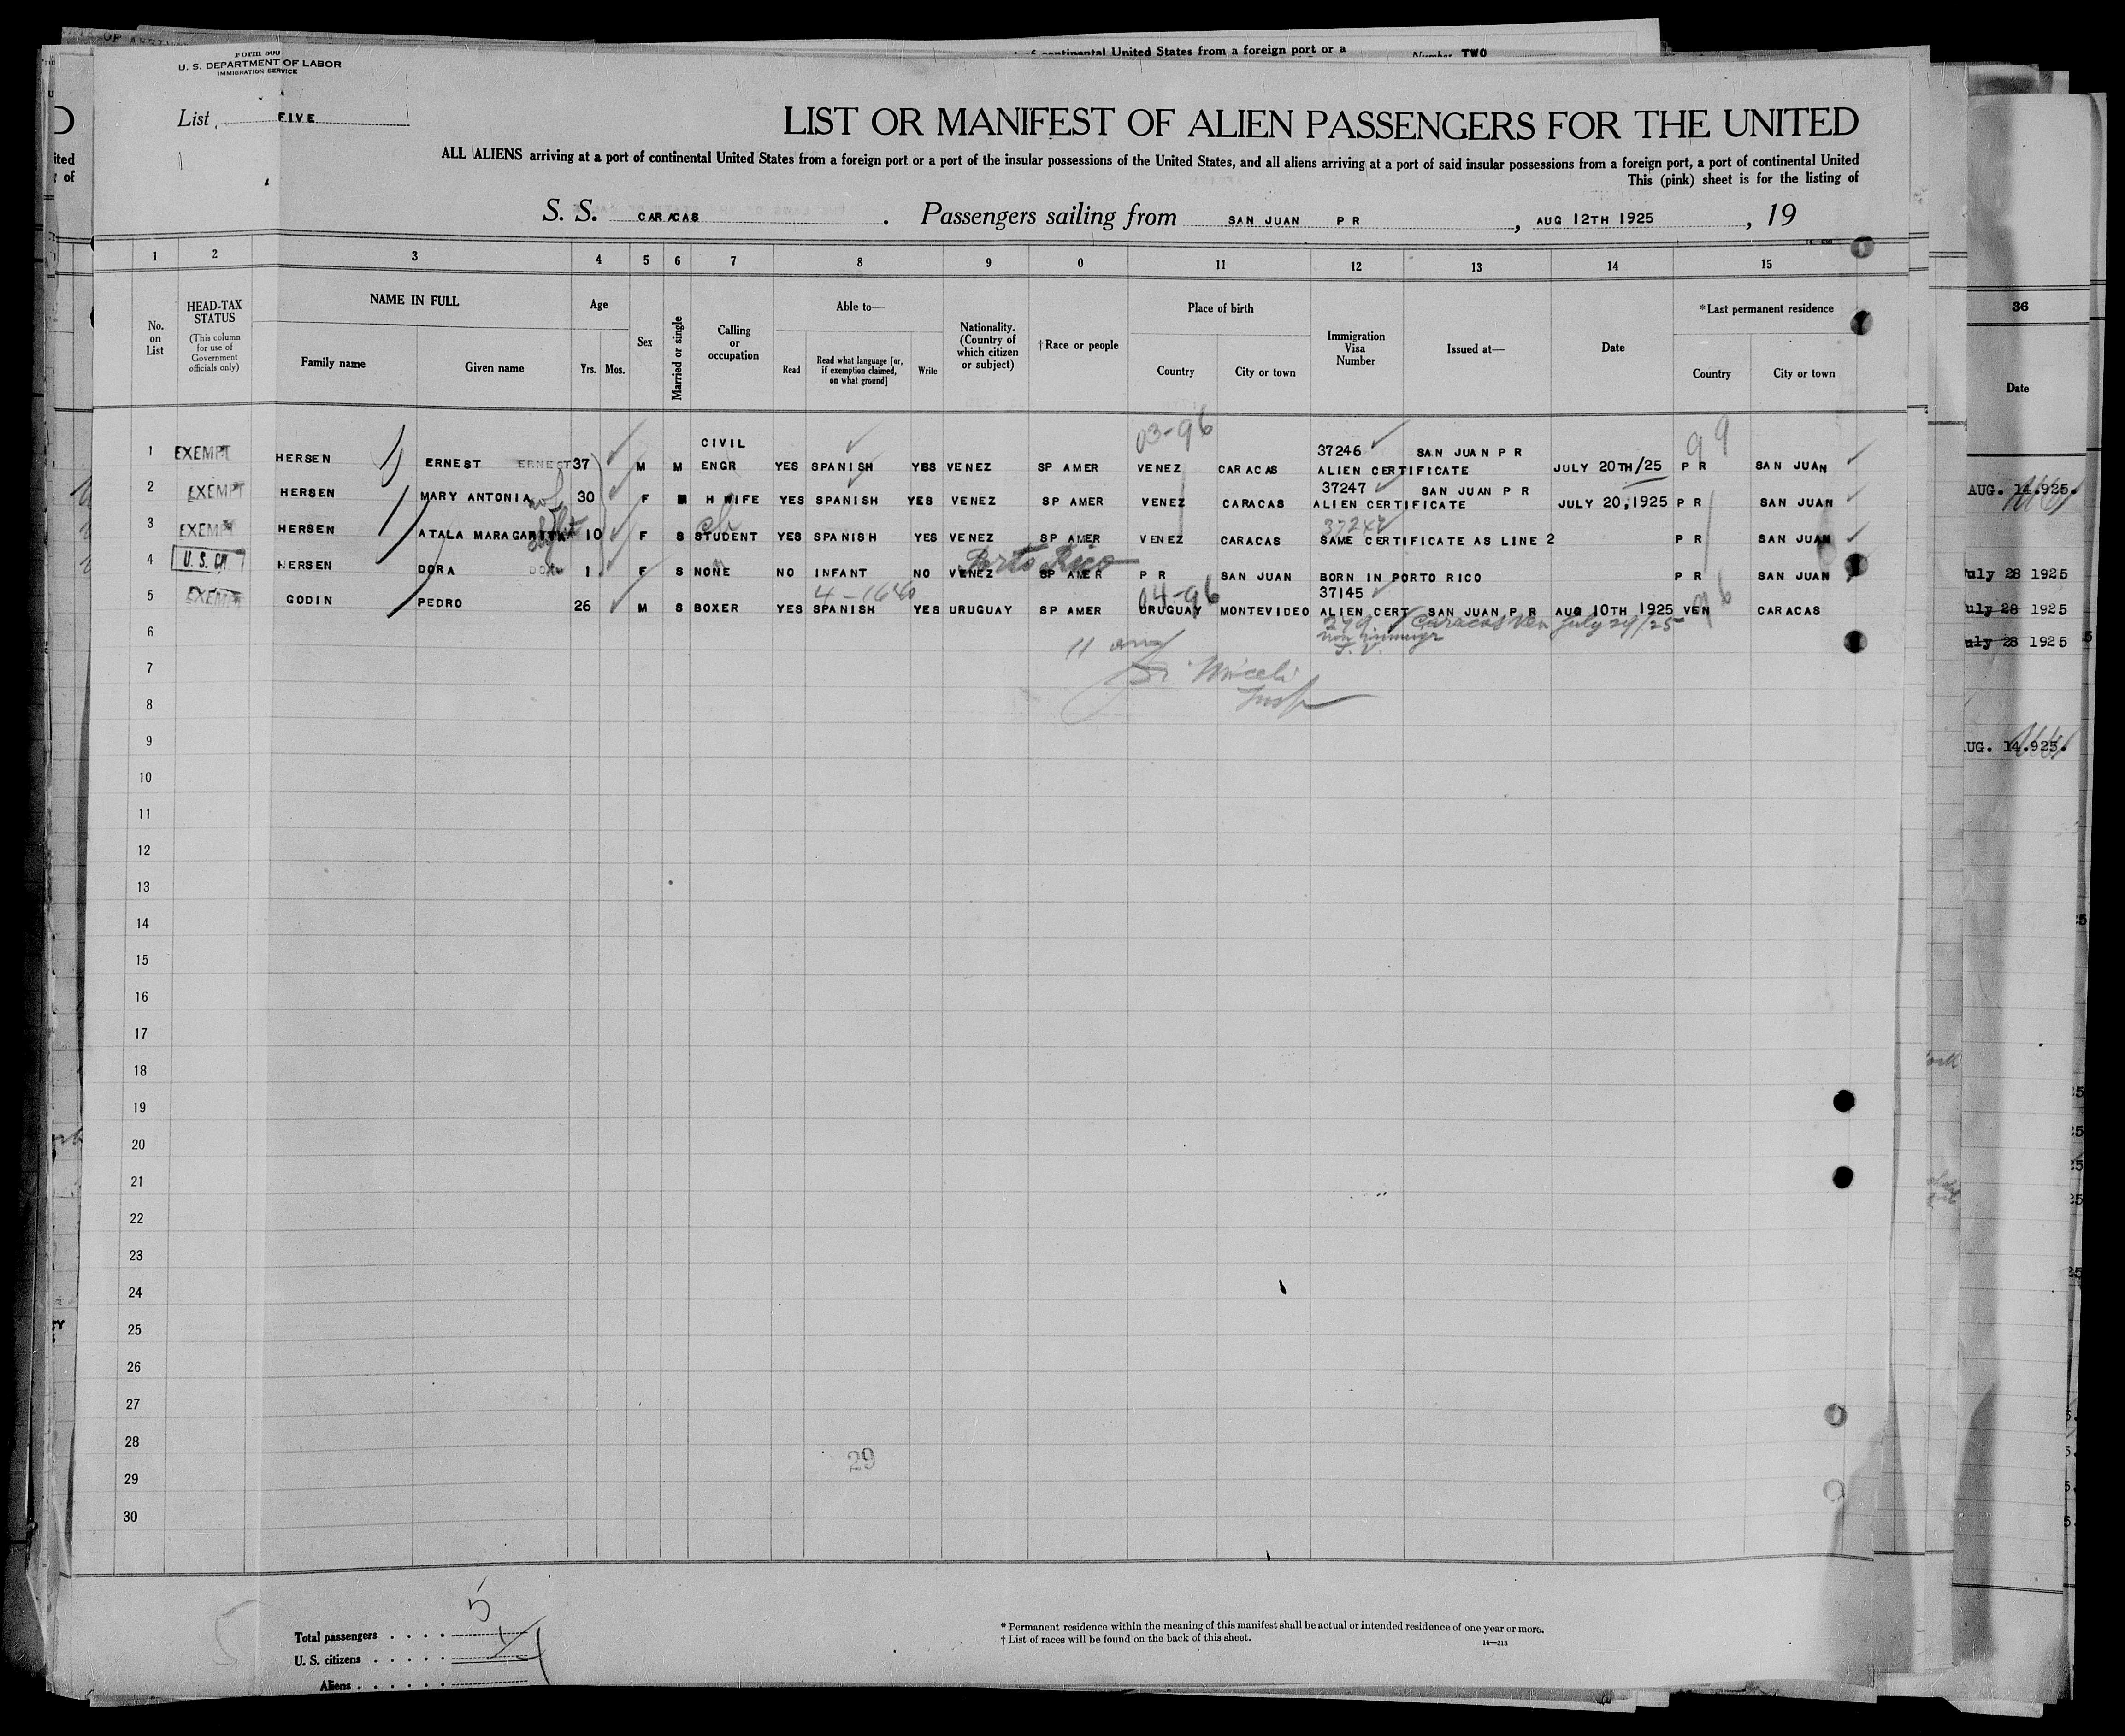 of continental United States from a foreign port or a
Number TWO
Form 500
U. S. DEPARTMENT OF LABOR
IMMIGRATION SERVICE
List FIVE
LIST OR MANIFEST OF ALIEN PASSENGERS FOR THE UNITED
ALL ALIENS arriving at a port of continental United States from a foreign port or a port of the insular possessions of the United States, and all aliens arriving at a port of said insular possessions from a foreign port, a port of continental United
This (pink) sheet is for the listing of
S. S. CARACAS. Passengers sailing from SAN JUAN P R, AUG 12TH 1925, 19
1 2 3 4 5 6 7 8 9 0 11 12 13 14 15
No. on List
HEAD-TAX STATUS
(This column for use of Government officials only)
NAME IN FULL
Family name
Given name
Age
Yrs. Mos.
Sex
Married or single
Calling or occupation
Able to—
Read
Read what language [or, if exemption claimed, on what ground]
Write
Nationality. (Country of which citizen or subject)
†Race or people
Place of birth
Country
City or town
Immigration Visa Number
Issued at—
Date
*Last permanent residence
Country
City or town
36
Date
03-96 99
1 EXEMPT HERSEN ERNEST ERNEST 37 M M CIVIL ENGR YES SPANISH YES VENEZ SP AMER VENEZ CARACAS 37246 ALIEN CERTIFICATE SAN JUAN P R JULY 20TH/25 P R SAN JUAN
2 EXEMPT HERSEN MARY ANTONIA 30 F M H WIFE YES SPANISH YES VENEZ SP AMER VENEZ CARACAS 37247 ALIEN CERTIFICATE SAN JUAN P R JULY 20,1925 P R SAN JUAN
3 EXEMPT HERSEN ATALA MARAGARITA 10 F S STUDENT ch YES SPANISH YES VENEZ SP AMER VENEZ CARACAS SAME CERTIFICATE AS LINE 2 P R SAN JUAN
4 U. S. CIT HERSEN DORA 1 F S NONE NO INFANT NO VENEZ Porto Rico SP AMER P R SAN JUAN BORN IN PORTO RICO P R SAN JUAN
04-96 96
5 EXEMPT GODIN PEDRO 26 M S BOXER YES SPANISH YES URUGUAY SP AMER URUGUAY MONTEVIDEO 37145 ALIEN CERT SAN JUAN P R AUG 10TH 1925 VEN CARACAS
Caracas Ven July 29/25
6
7
8
9
10
11
12
13
14
15
16
17
18
19
20
21
22
23
24
25
26
27
28
29
30
29
AUG. 14.925.
July 28 1925
July 28 1925
July 28 1925
AUG. 14.925.
Total passengers . . . . 5
U. S. citizens . . . . .
Aliens . . . . . .
* Permanent residence within the meaning of this manifest shall be actual or intended residence of one year or more.
† List of races will be found on the back of this sheet.
14—213